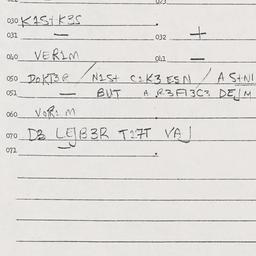 030 K1St K3S
031 — 032 +
040 VER1M 041 —
050 DOKT3R / N1St C1K3 ESN / A StNI
051 — BUT A R3F13C3 DEJM
060 V0R1M
070 D3 LEJB3R T17T VAJ
072